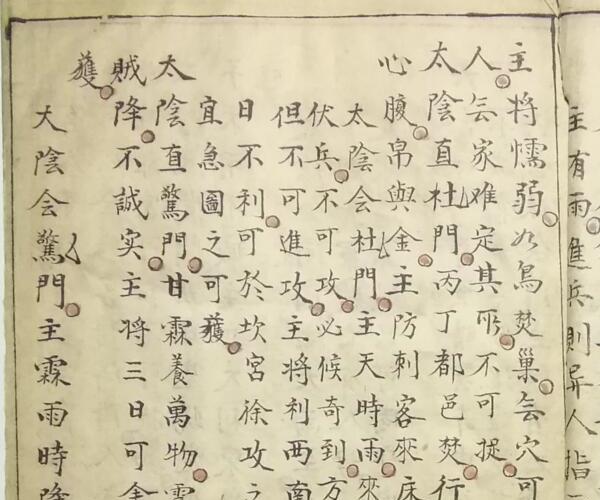 主將懦弱如鳥焚巢無穴可
人無家难定其所不可捉
太陰直杜門丙丁都邑焚行
心腹帛與金主防刺客來床
太陰会杜門主天時雨來
伏兵不可攻必候奇到方
但不可進攻主將利西南
日不利可於坎宮徐攻之
宜急圖之可獲
太陰直驚門甘霖養萬物
賊降不誠实主將三日可
獲
大陰会驚門主霖雨時降
主有雨進兵則异人指